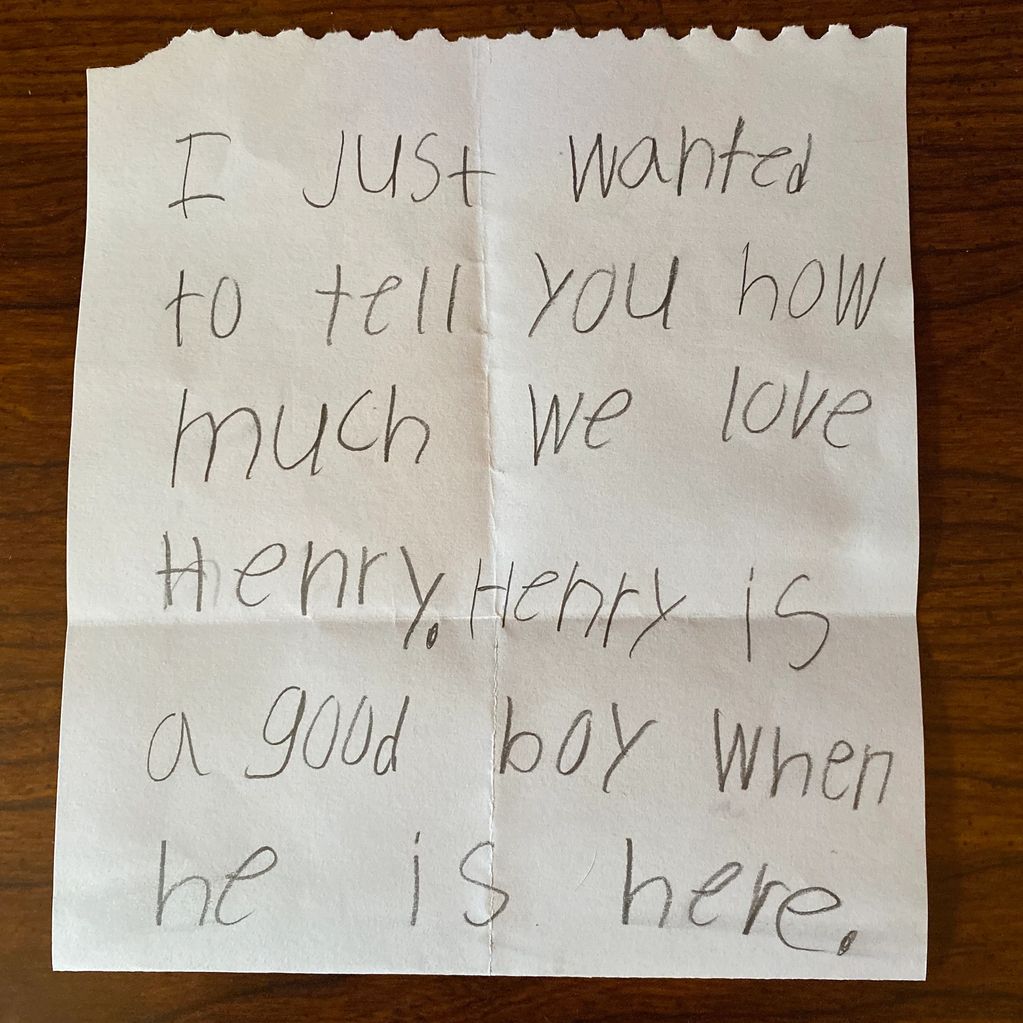 I just wanted
to tell you how
much we love
Henry. Henry is
a good boy when
he is here.